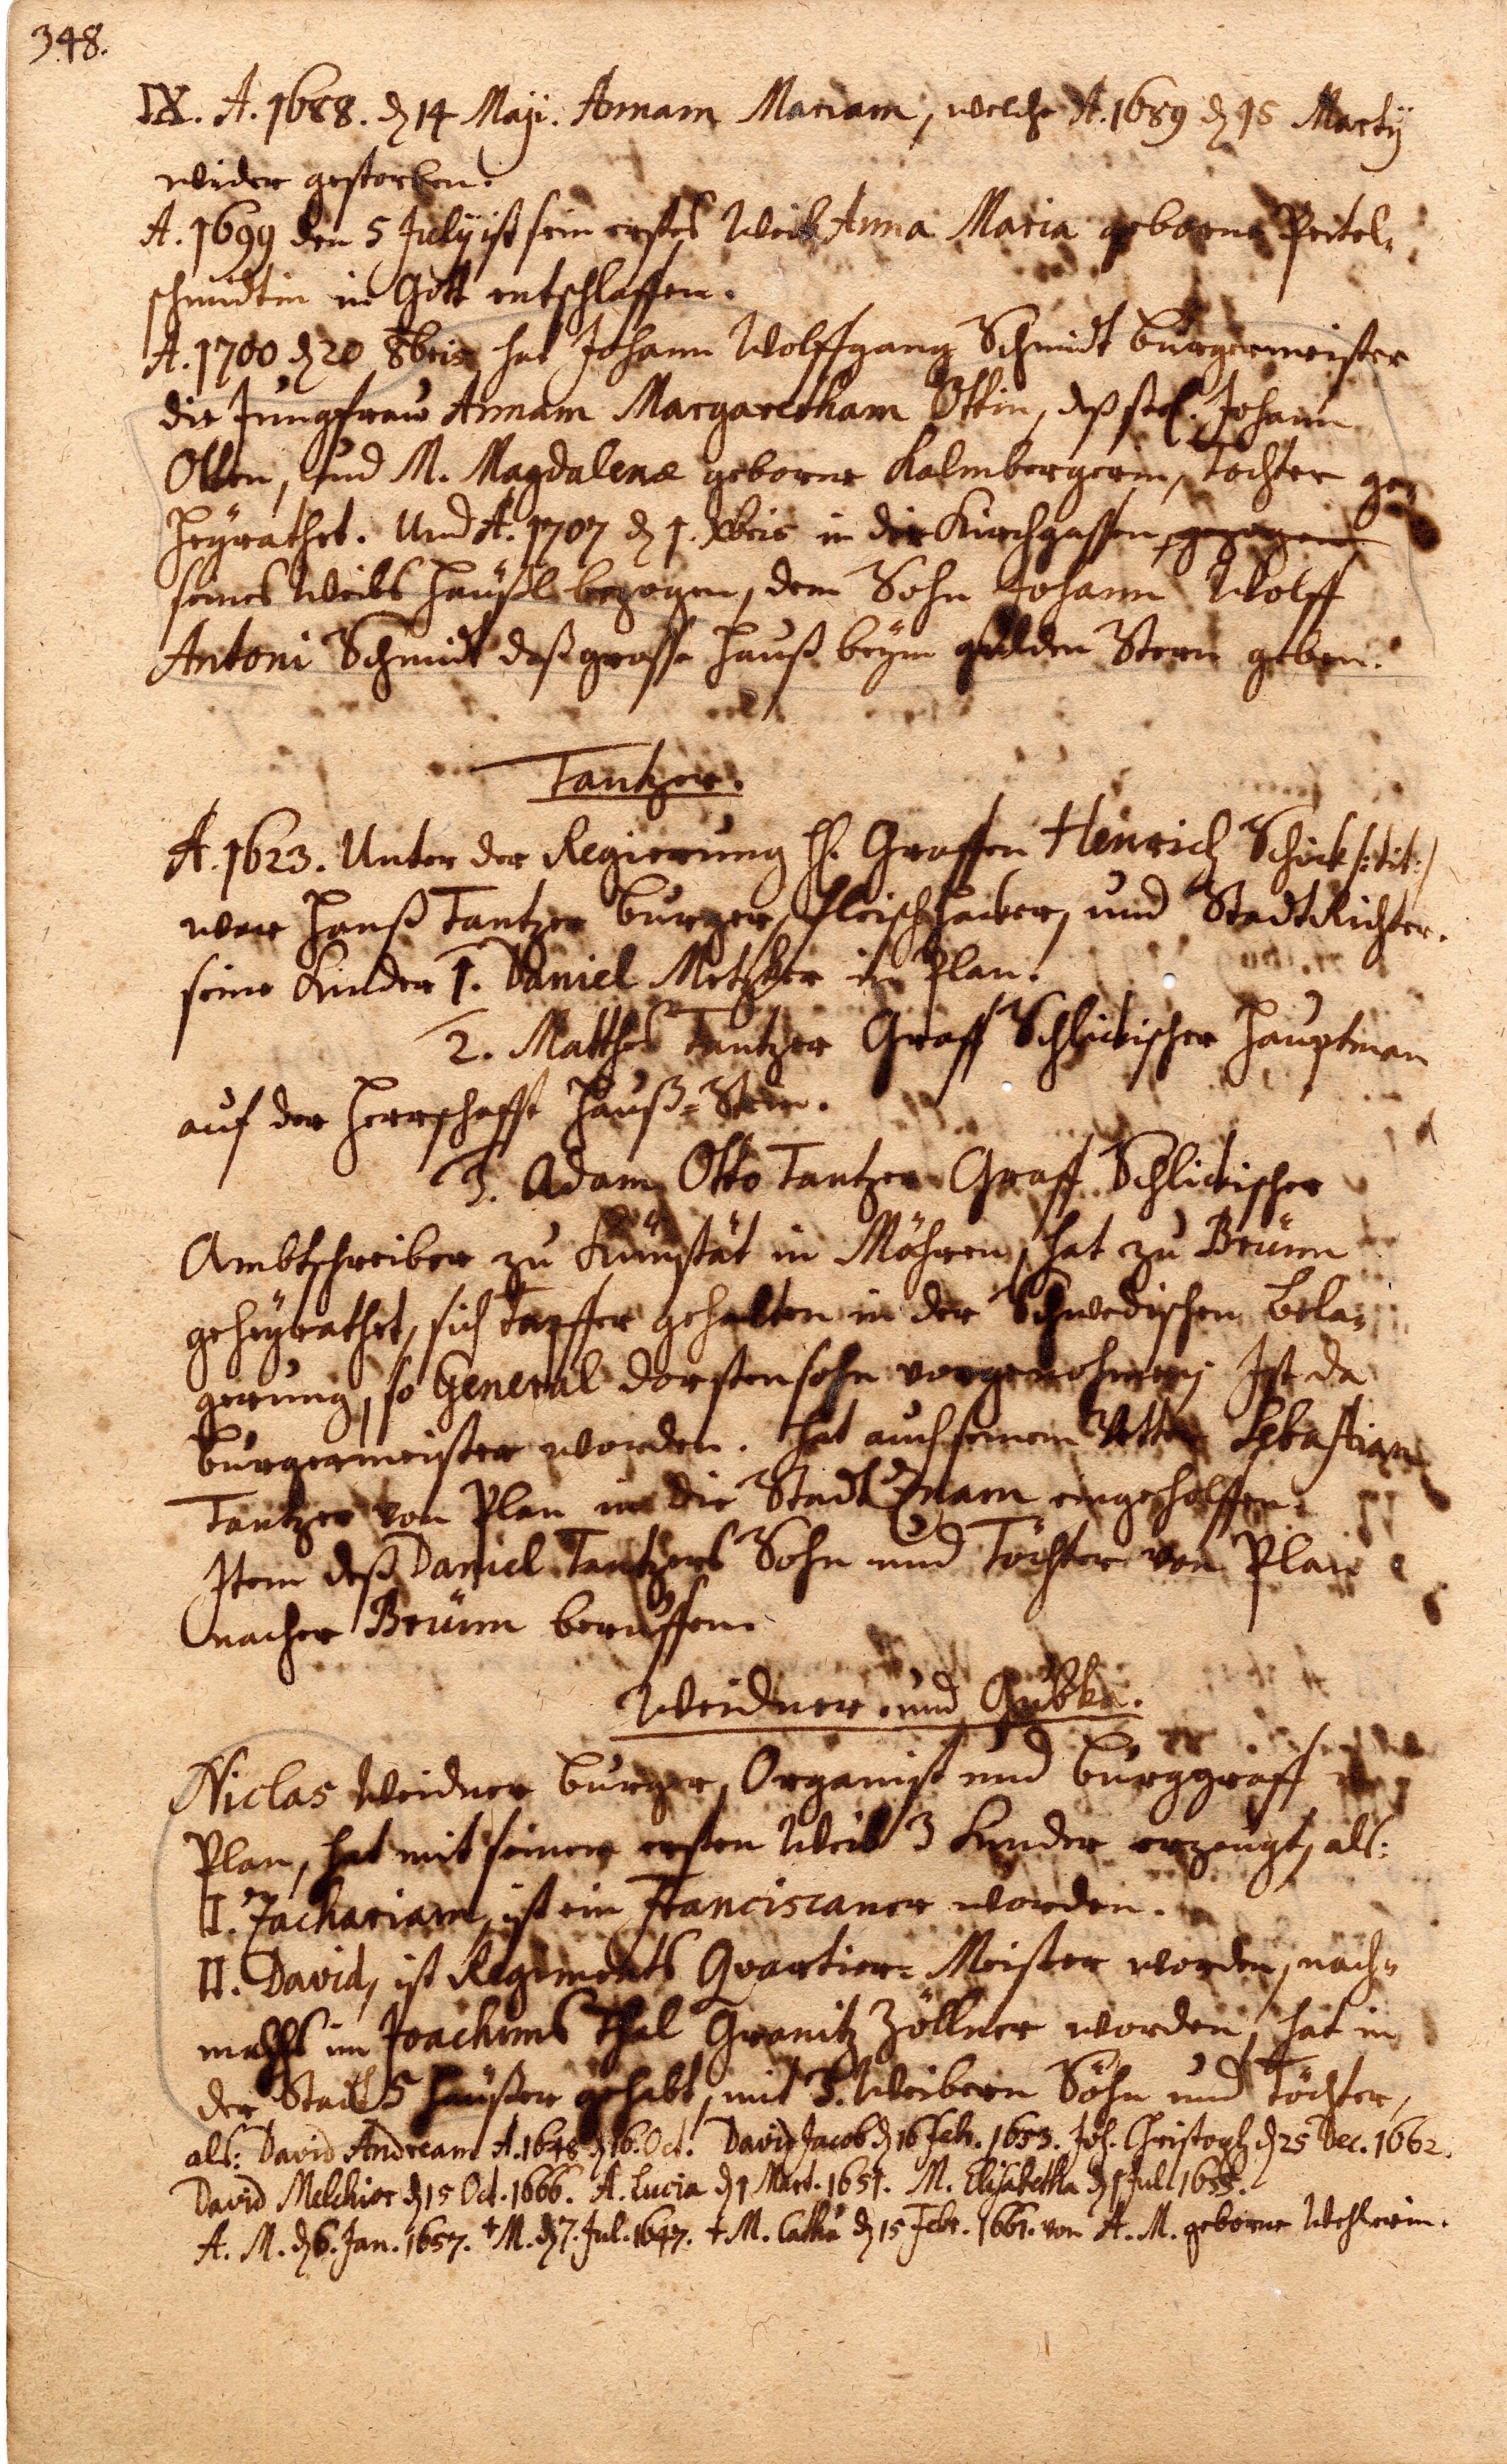 348.
IX. A. 1688. d 14 Maji. Annam Mariam, welche A. 1689 d 15 Martij
wider gestorben.
A. 1699 den 5 Julij ist sein erstes Weib Anna Maria geborne Peitel-
schmidtin in Gott entschlaffen.
A. 1700 d 20 8bris hat Johann Wolffgang Schmidt burgermeister
die Jungfraw Annam Margaretham Ottin, deß seel. Johann
Otten, und M. Magdalenæ geborne Kalmbergerin, Tochter ge-
heyrathet. Und A. 1707 d 1. Xbris in die Kirchgassen gezogen
seines Weibs häußl bezogen, dem Sohn Johann Wolff
Antoni Schmidt daß grosse hauß beym gulden Stern geben.
Tantzer.
A. 1623. Unter der Regierung H. Graffen Henrich Schick /:tit:/
war Hanß Tantzer burger, fleischhacker, und StadtRichter.
seine Kinder 1. Daniel Metzker in Plan.
2. Matthes Tantzer Graff Schlickischer Hauptman
auf der Herrschafft Hauß-Stein.
3. Adam Otto Tantzer Graff Schlickischer
Ambtschreiber zu Kunstät in Mähren, hat zu Brünn
geheyrathet, sich Tapffer gehalten in der Schwedischen bela-
gerung, so General dorstensohn vorgenohmen; Ist da
burgermeister worden. hat auch seinem Vetter Sebastian
Tantzer von Plan in die Stadt Znam eingeholffen.
Item deß Daniel Tantzers Sohn und Töchter von Plan
nacher Brünn beruffen.
Weidner und Gubka.
Niclas Weidner burger, Organist und burggraff in
Plan, hat mit seinem ersten Weib 3 Kinder erzeugt, als:
I. Zachariam, ist ein Franciscaner worden.
II. David, ist Regiments Quartier-Meister worden, nach-
mahls im Joachims Thal Granitz Zöllner worden, hat in
der Stadt 5 häußer gehabt, mit 3. Weibern Söhn und Töchter,
als: David Andream A. 1648 d 16. Oct. David Jacob d 16 Feb. 1653. Joh. Christoph d 25 Dec. 1662.
David Melchior d 15 Oct. 1666. A. Lucia d 1 Mart. 1651. M. Elisabetha d 1 Jul 1655.
A. M. d 6. Jan. 1657. + M. d 7. Jul. 1647. + M. Catha d 15 Febr. 1661. von A. M. geborne Wehlerin.